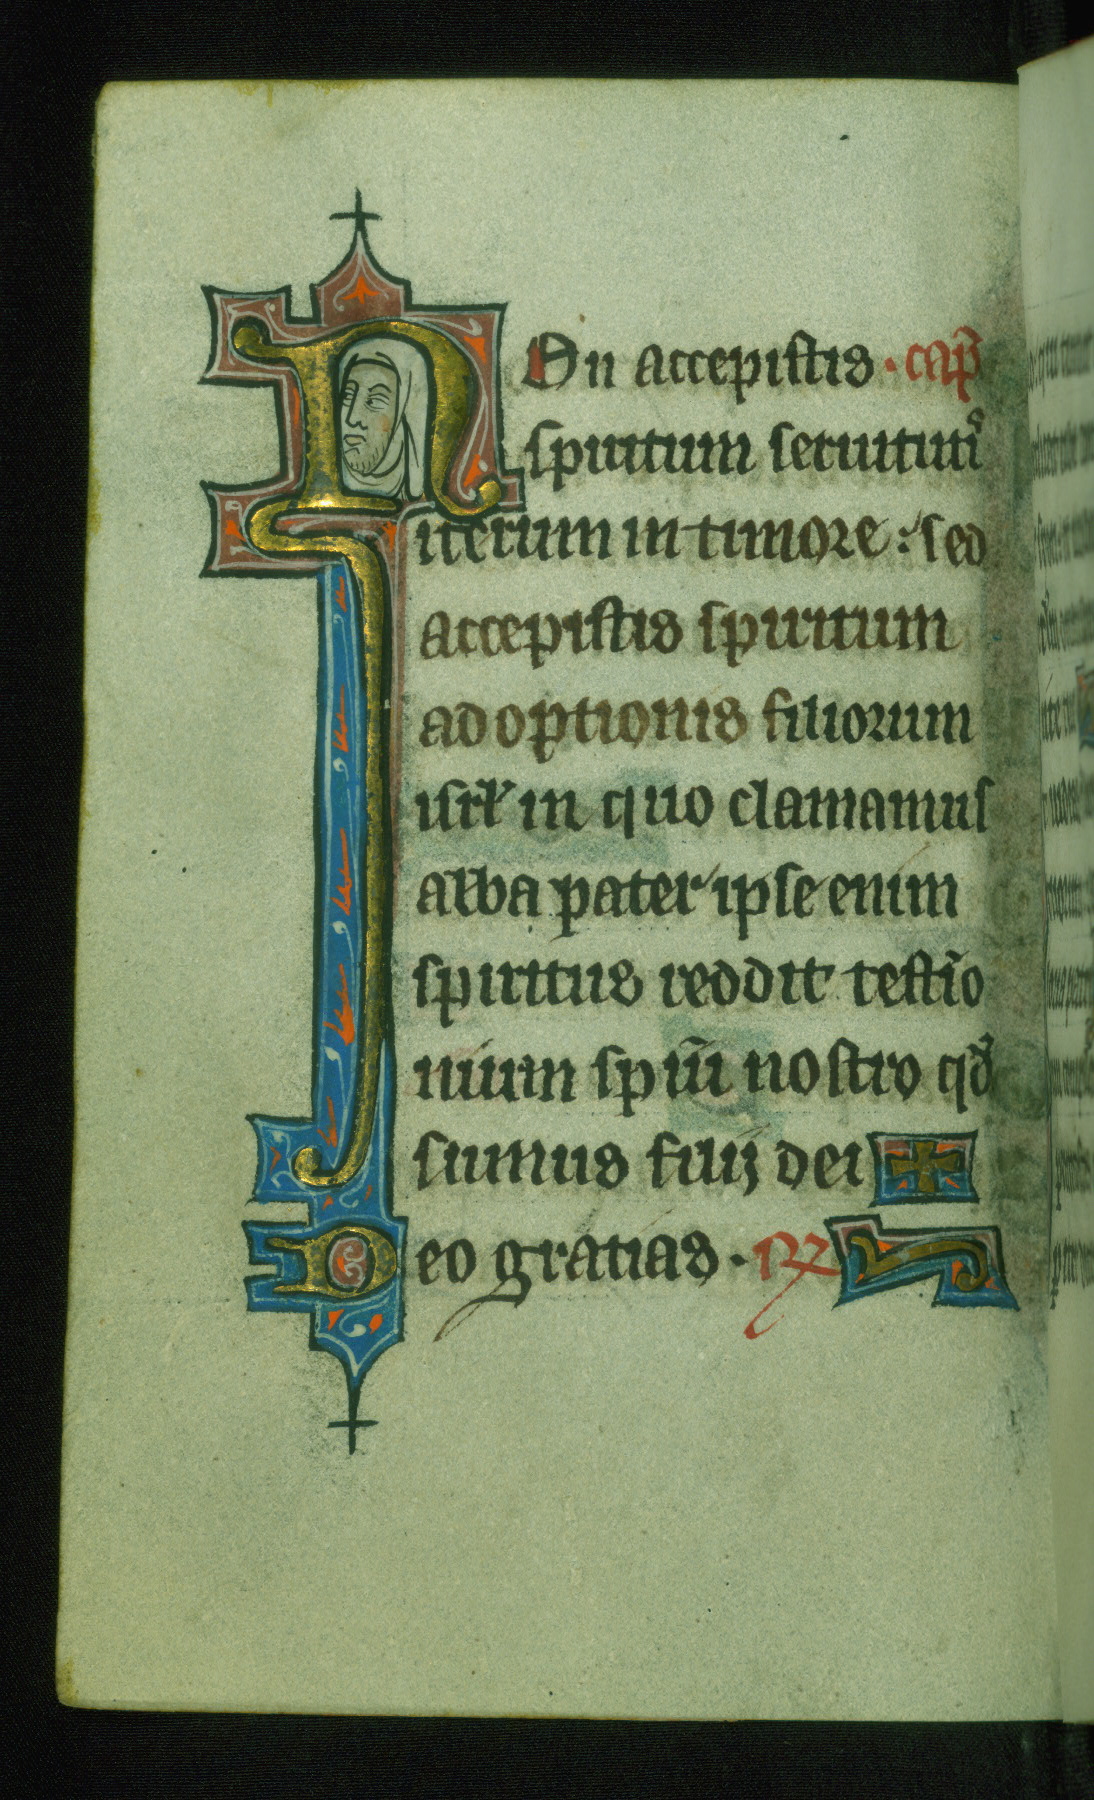 NOn accepistis · cap̃
spiritum seruituti᷑
iterum in timore : sed
accepistis spiritum
adoptionis filiorum
isrl̓ in quo clamamus
abba pater ipse enim
spiritus reddit testĩo
nium sp̃ui nostro qđ
sumus filij dei
Deo gratias · ℟